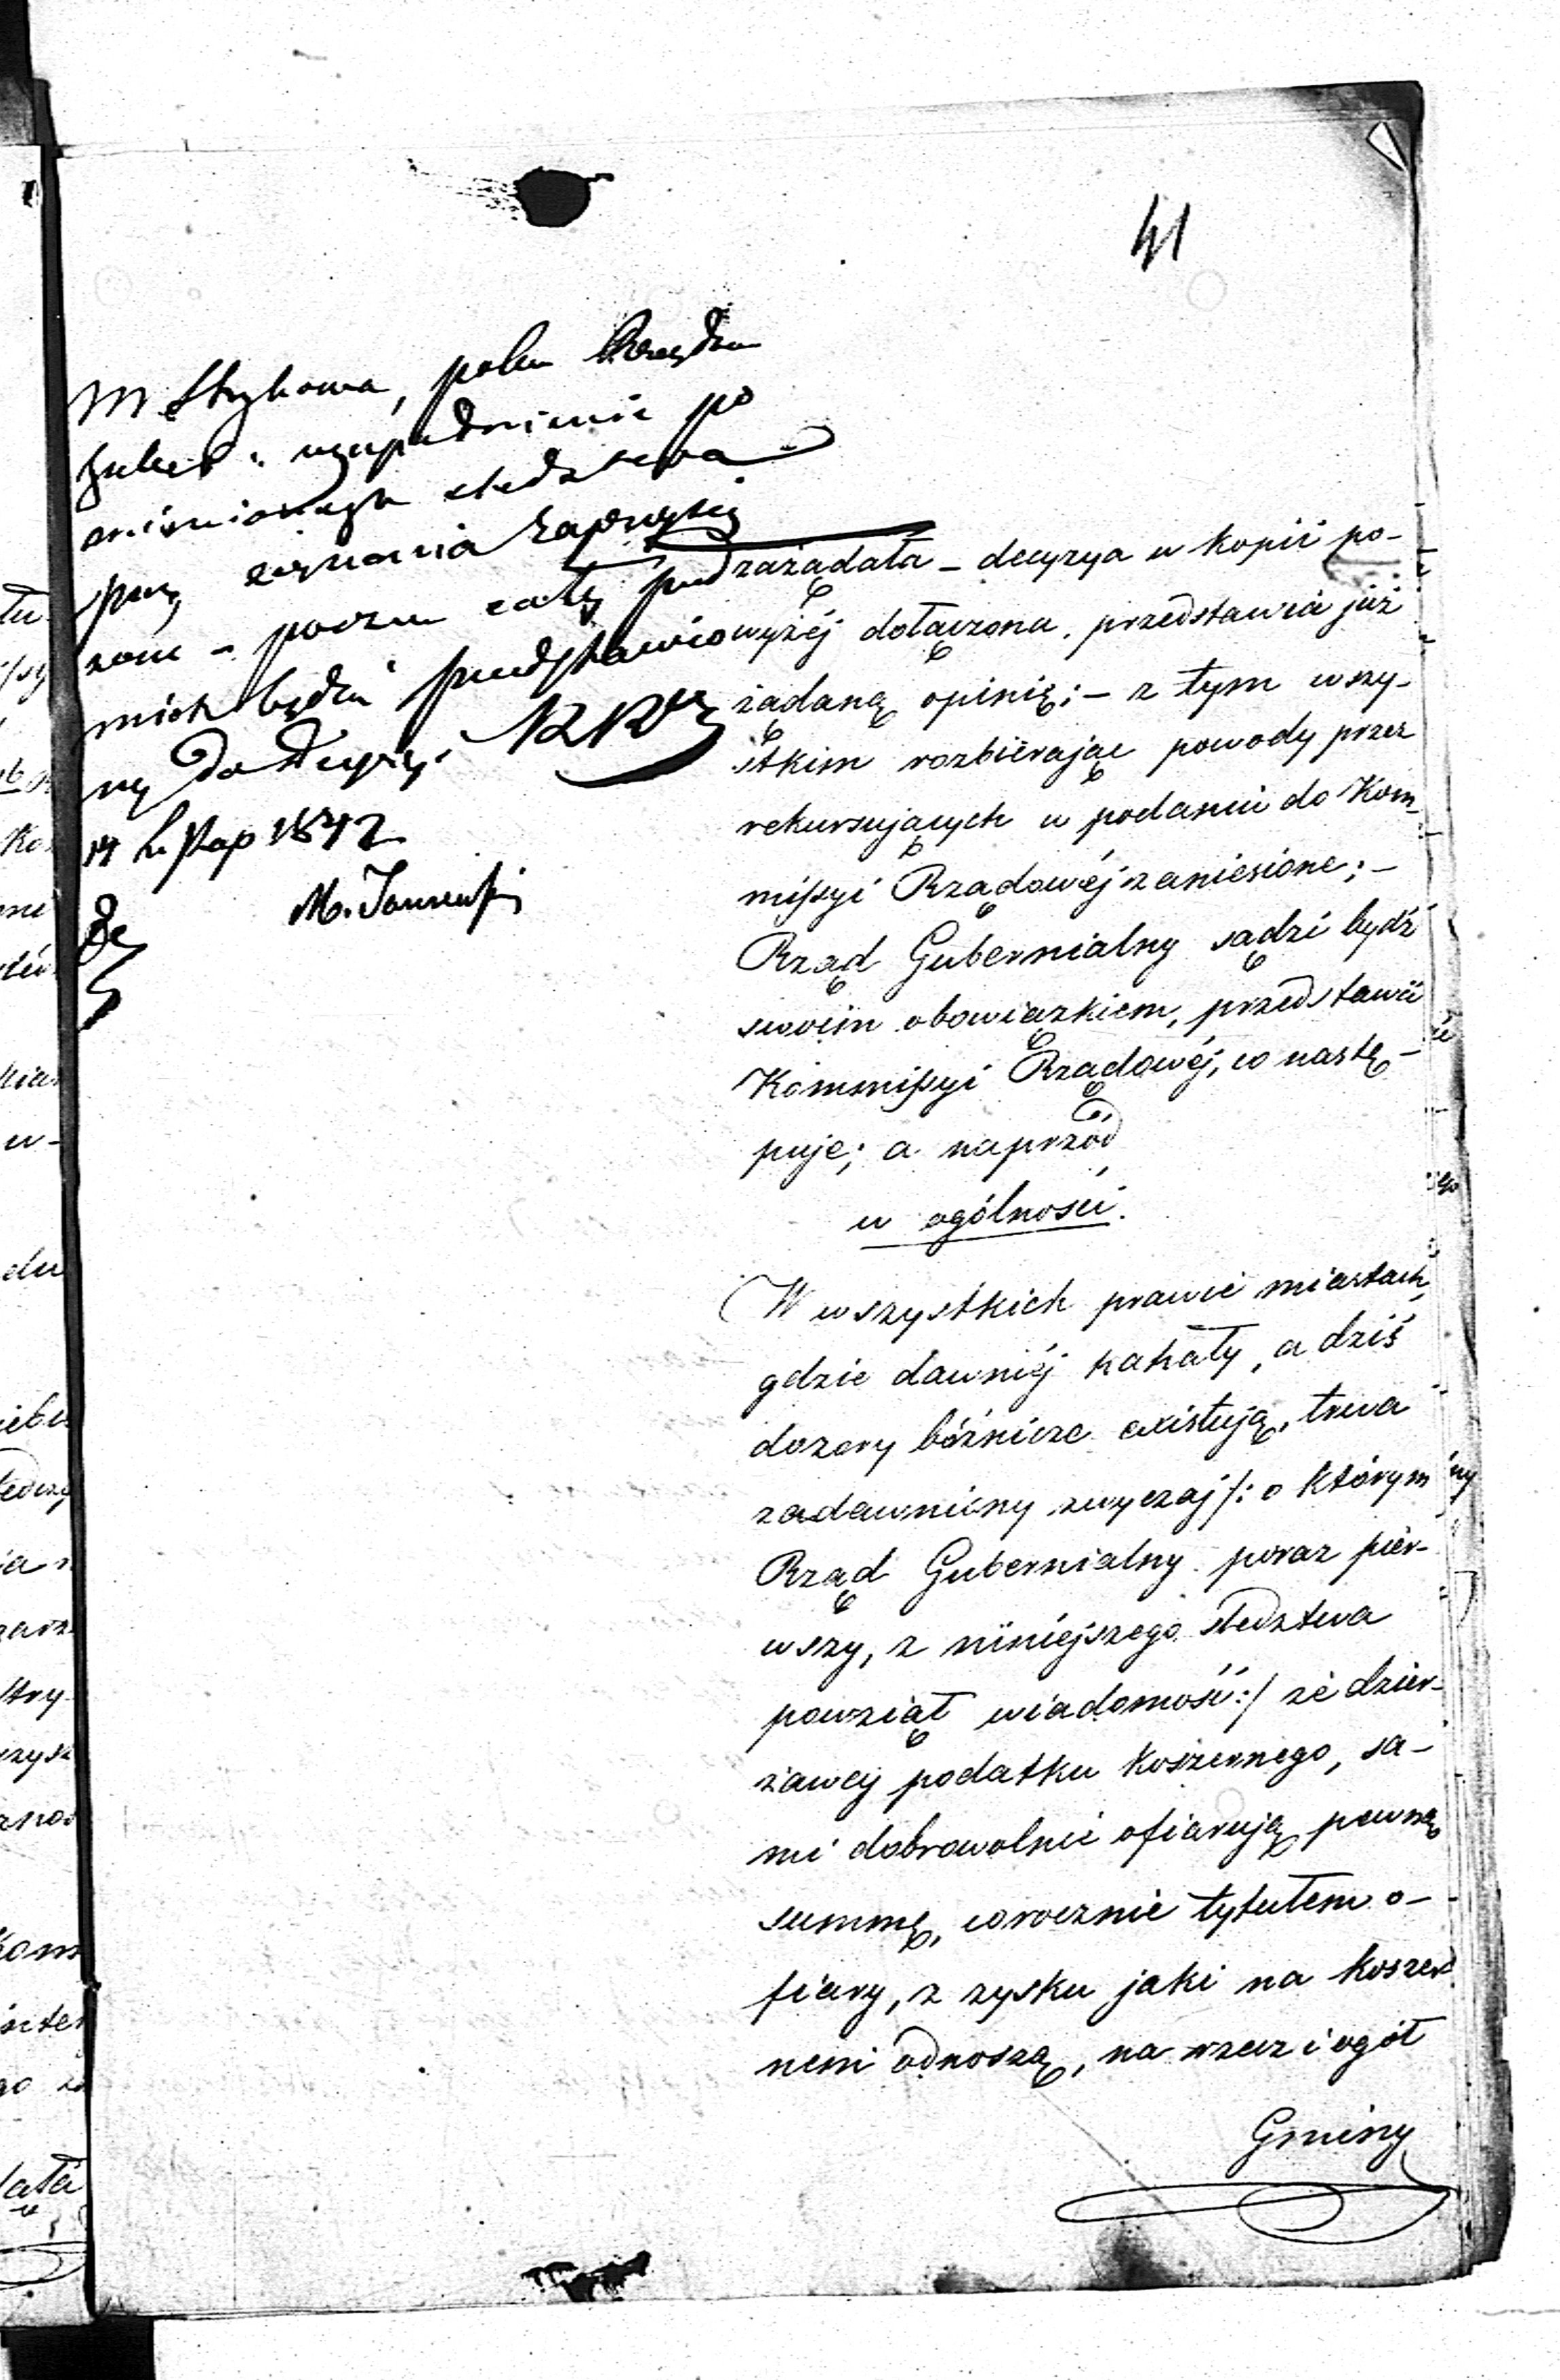 41
M. Strykowa, polu
uzupełnienie po
śledztwa
przy zeznania zaprzysię
zone - poczem cały
będzie przedstawio
ny do Decyzyi KRz
14 Listop 1842
zażądała - decyzya w kopii po-
wyżéj dołączona, przedstawia już
żądaną opinię; - z tym wszy-
stkim rozbierając powody przez
rekursujących w podaniu do Kom-
missyi Rządowéj zaniesione; -
Rząd Gubernialny sądzi bydź
swoim obowiązkiem, przedstawić
Kommissyi Rządowéj, co nastę-
puje; a naprzód
w ogólności.
W wszystkich prawie miastach,
gdzie dawniéj kahały, a dziś
dozory bóźnicze existują, trwa
zadawniony zwyczaj /: o którym
Rząd Gubernialny poraz pier-
wszy, z niniejszego śledztwa
powziął wiadomość :/ że dzier-
żawcy podatku koszernego, sa-
mi dobrowolnie ofiarują pewną
summę, corocznie tytułem o-
fiary, z zysku jaki na koszer
nem odnoszą, na rzecz i ogół
Gminy